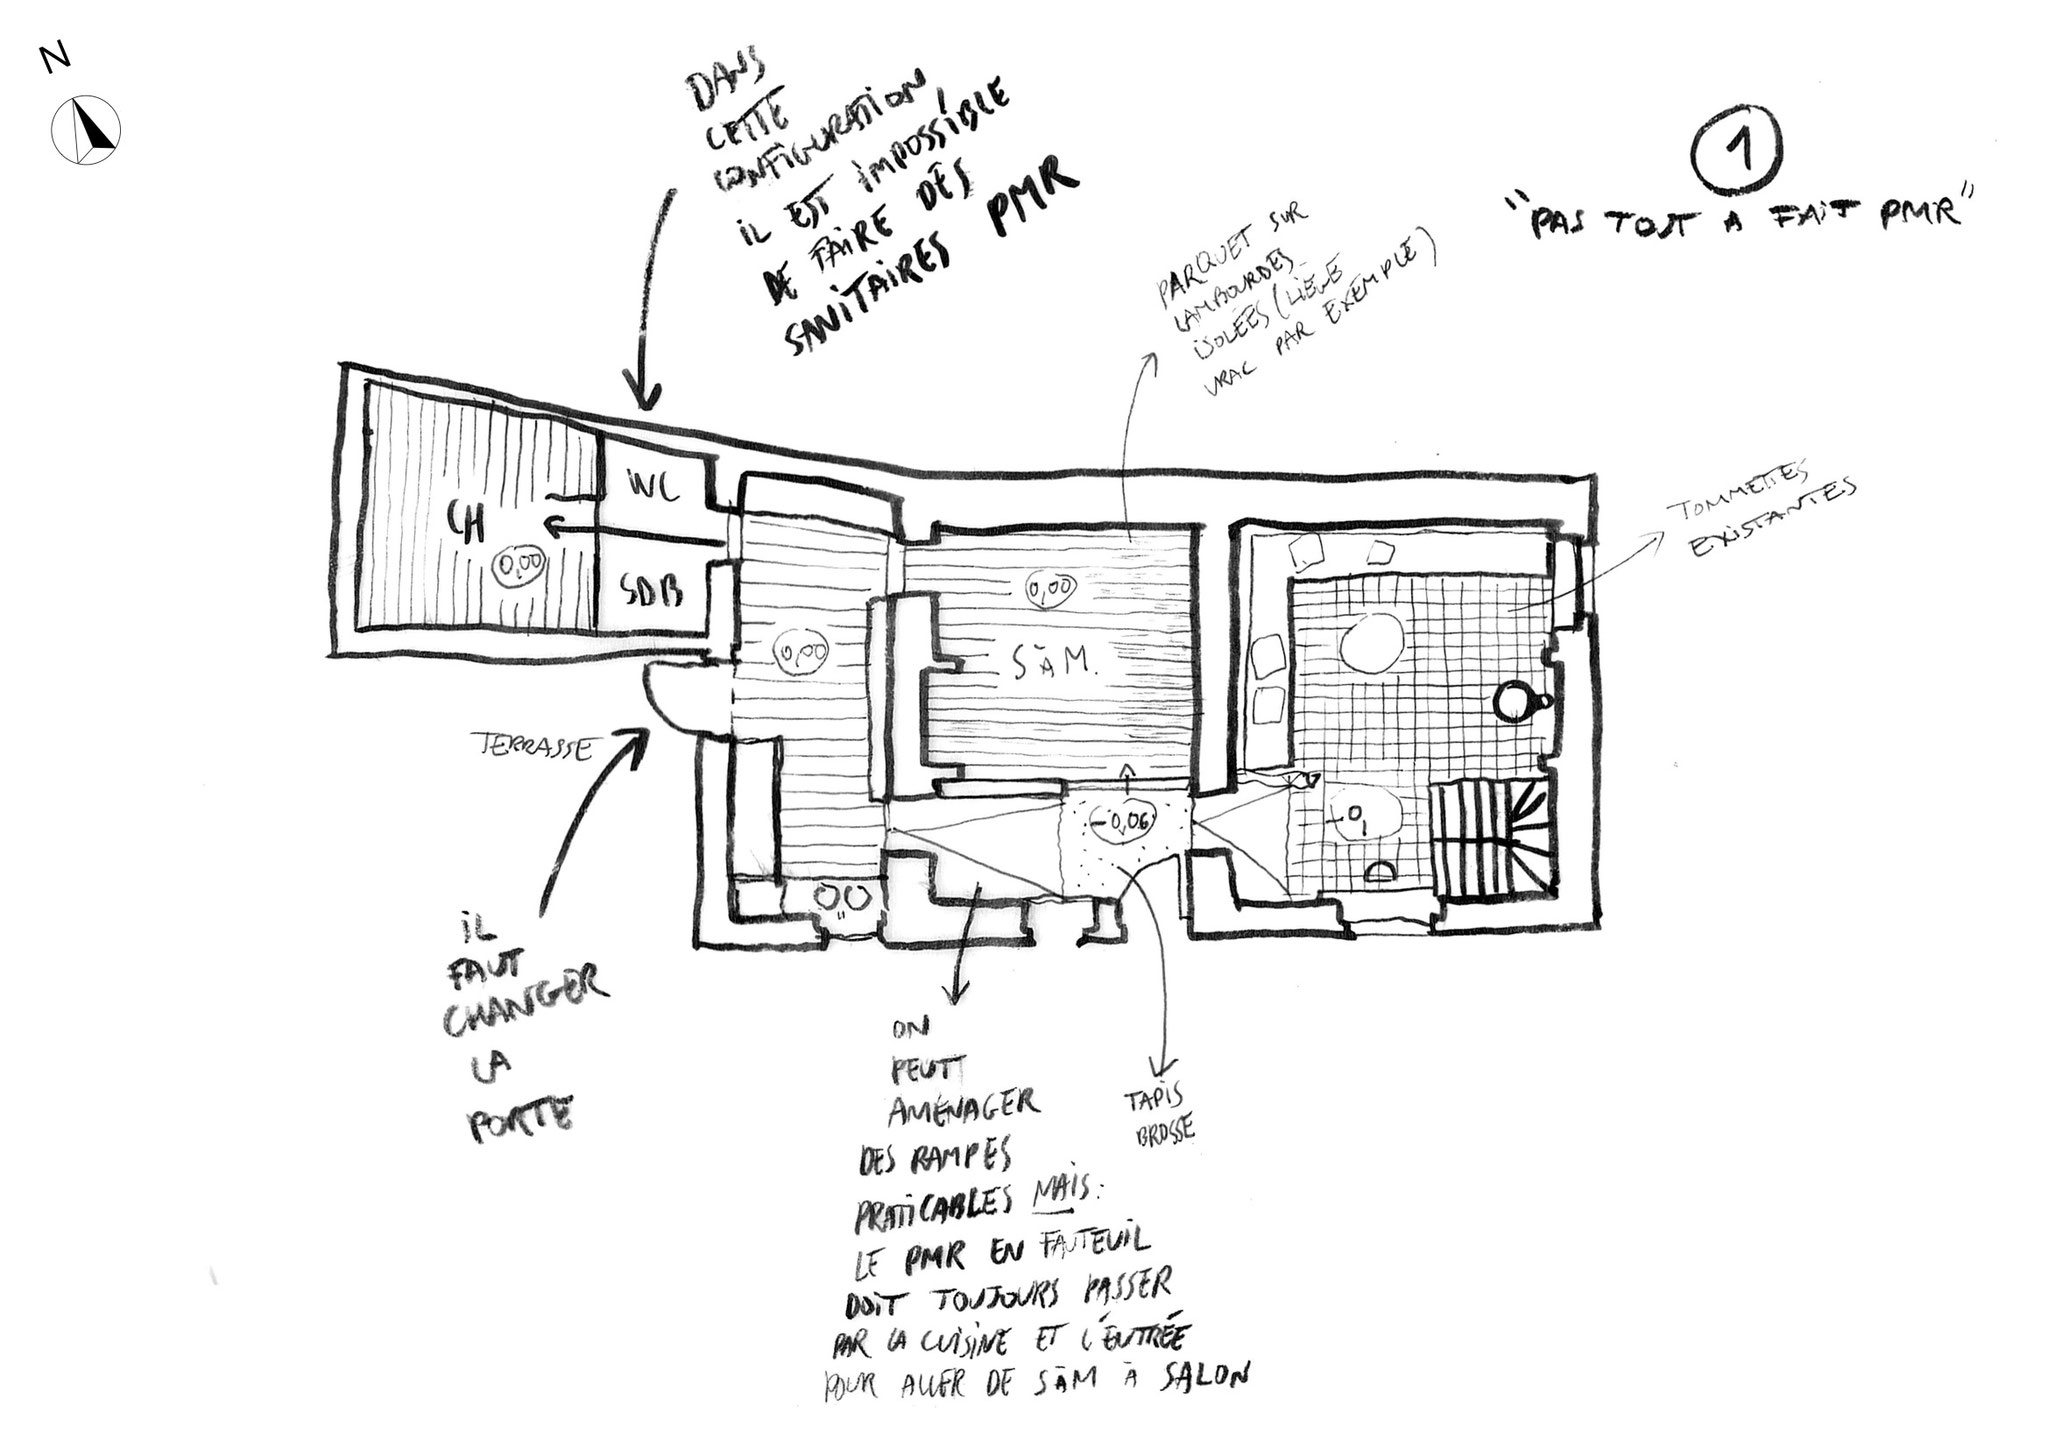 N
DANS
CETTE
CONFIGURATION,
IL EST IMPOSSIBLE
DE FAIRE DES
SANITAIRES PMR
1
"PAS TOUT A FAIT PMR"
PARQUET SUR
LAMBOURDES
ISOLÉES (LIÈGE
VRAC PAR EXEMPLE)
TOMMETTES
EXISTANTES
WC
CH
0,00
SDB
0,00
0,00
SÀM.
TERRASSE
-0,06
-0,
IL
FAUT
CHANGER
LA
PORTE
ON
PEUT
AMÉNAGER
DES RAMPES
PRATICABLES MAIS:
LE PMR EN FAUTEUIL
DOIT TOUJOURS PASSER
PAR LA CUISINE ET L'ENTRÉE
POUR ALLER DE SÀM À SALON
TAPIS
BROSSE